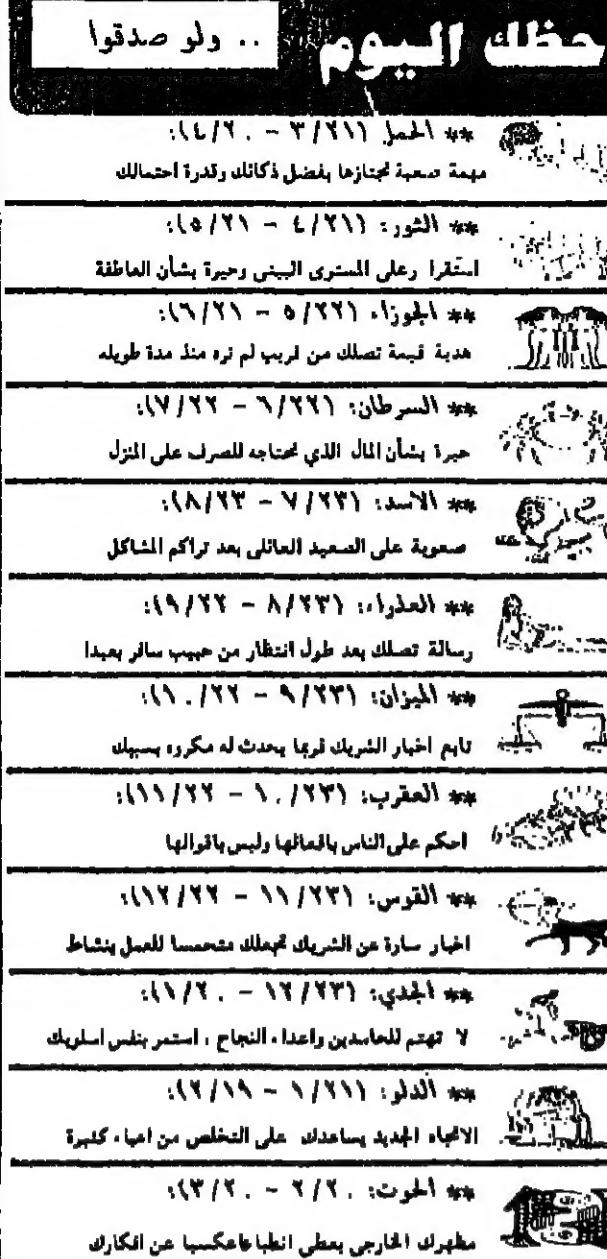 حظك اليوم
.. ولو صدقوا
** الحمل (٣/٢١ - ٤/٢٠):
مهمة صعبة تجتازها بفضل ذكائك وقدرة احتمالك
** الثور: (٤/٢١ - ٥/٢١):
استقرا رعلى المستوى البيني وحيرة بشأن العاطفة
** الجوزاء (٥/٢٢ - ٦/٢١):
هدية قيمة تصلك من قريب لم تره منذ مدة طويله
** السرطان: (٦/٢٢ - ٧/٢٢):
حيرة بشأن المال الذي تحتاجه للصرف على المنزل
** الاسد: (٧/٢٣ - ٨/٢٣):
صعوبة على الصعيد العائلي بعد تراكم المشاكل
** العذراء: (٨/٢٣ - ٩/٢٢):
رسالة تصلك بعد طول انتظار من حبيب سافر بعيدا
** الميزان: (٩/٢٣ - ١٠/٢٢):
تابع اخبار الشريك فربما يحدث له مكروه بسببك
** العقرب: (١٠/٢٣ - ١١/٢٢):
احكم على الناس بافعالها وليس باقوالها
** القوس: (١١/٢٣ - ١٢/٢٢):
اخبار سارة عن الشريك تجعلك متحمسا للعمل بنشاط
** الجدي: (١٢/٢٣ - ١/٢٠):
لا تهتم للحاسدين واعداء النجاح ، استمر بنفس اسلوبك
** الدلو: (١/٢١ - ٢/١٩):
الاتجاه الجديد يساعدك على التخلص من اعباء كثيرة
** الحوت: ٢/٢٠ - ٣/٢٠):
مظهرك الخارجي يعطي انطباعاعكسيا عن افكارك